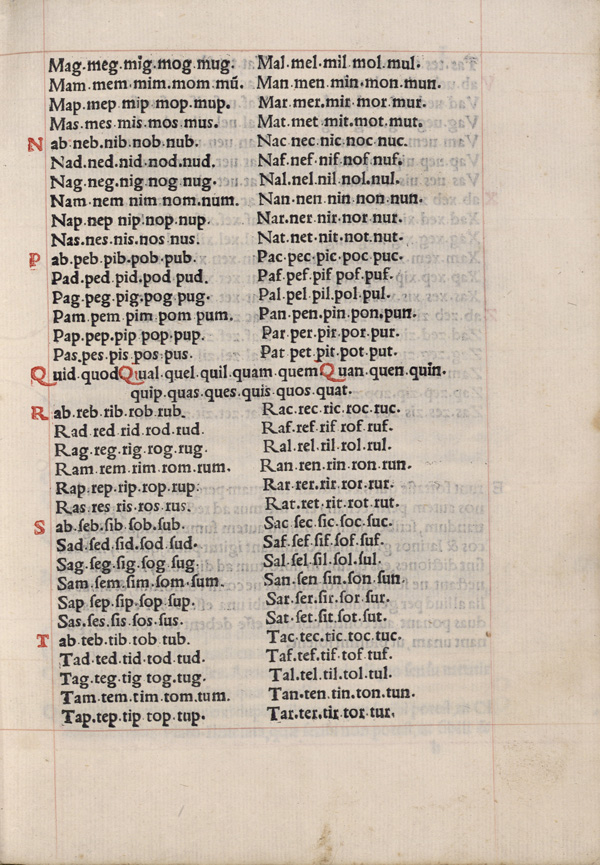 Mag.meg.mig.mog.mug. Mal.mel.mil mol.mul.
Mam.mem.mim.mom.mū. Man.men.min.mon.mun.
Map.mep mip mop.mup. Mar.mer.mir mor.mur.
Mas.mes mis.mos mus. Mat.met mit.mot.mut.
N ab.neb.nib.nob.nub. Nac nec.nic noc nuc.
Nad.ned.nid nod.nud. Naf.nef.nif nof nuf.
Nag.neg.nig nog nug. Nal.nel.nil nol.nul.
Nam.nem nim nom.num. Nan.nen nin non nun.
Nap.nep nip.nop.nup. Nar.ner nir nor nur.
Nas.nes.nis.nos nus. Nat.net.nit.not.nut.
P ab.peb.pib.pob.pub. Pac.pec.pic.poc puc.
Pad.ped pid.pod pud. Paf.pef.pif pof.puf.
Pag.peg.pig.pog pug. Pal.pel pil.pol.pul.
Pam.pem pim pom pum. Pan.pen.pin pon.pun.
Pap.pep.pip pop.pup. Par per.pir por.pur.
Pas.pes pis pos.pus. Pat pet.pit.pot.put.
Quid.quod Qual.quel.quil.quam.quem Quan.quen.quin.
quip.quas.ques.quis.quos.quat.
R ab.reb.rib.rob.rub. Rac.rec ric.roc.ruc.
Rad.red rid.rod.rud. Raf.ref.rif rof.ruf.
Rag.reg.rig.rog.rug. Ral.rel.ril.rol.rul.
Ram.rem.rim.rom.rum. Ran.ren.rin.ron.run.
Rap.rep.rip.rop.rup. Rar.rer.rir.ror.rur.
Ras.res ris.ros.rus. Rat.ret.rit.rot.rut.
S ab.ſeb.ſib ſob.ſub. Sac ſec.ſic.ſoc.ſuc.
Sad.ſed ſid.ſod ſud. Saf.ſef.ſif.ſof.ſuf.
Sag.ſeg.ſig.ſog ſug. Sal.ſel.ſil.ſol.ſul.
Sam.ſem.ſim.ſom.ſum. San.ſen ſin.ſon.ſun.
Sap ſep.ſip.ſop ſup. Sar.ſer.ſir.ſor ſur.
Sas.ſes.ſis ſos.ſus. Sat.ſet ſit.ſot.ſut.
T ab.teb.tib tob tub. Tac.tec.tic toc tuc.
Tad.ted.tid tod tud. Taf.tef.tif tof tuf.
Tag.teg.tig tog.tug. Tal.tel.til.tol.tul.
Tam tem tim.tom.tum. Tan.ten tin.ton.tun.
Tap.tep.tip top.tup. Tar.ter.tir tor.tur.